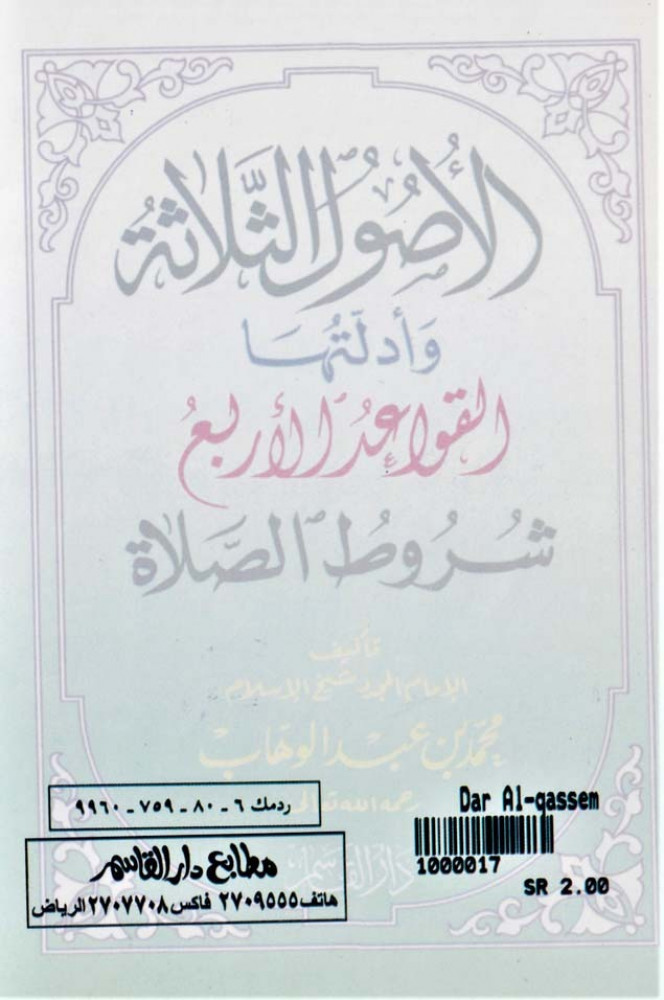 الأُصُولُ الثَّلاثَةُ
وَأدلَّتُهَا
القواعدُ الأربعُ
شُرُوطُ الصَّلاة
تأليف
الإمام المجدد شيخ الإسلام
محمّد بن عبد الوهاب
رحمه الله تعالى
دار القاسم
ردمك ٦ - ٨٠ - ٧٥٩ - ٩٩٦٠
مطابع دار القاسم
هاتف ٢٧٠٩٥٥٥ فاكس ٢٧٠٧٧٠٨ الرياض
Dar Al-qassem
1000017
SR 2.00